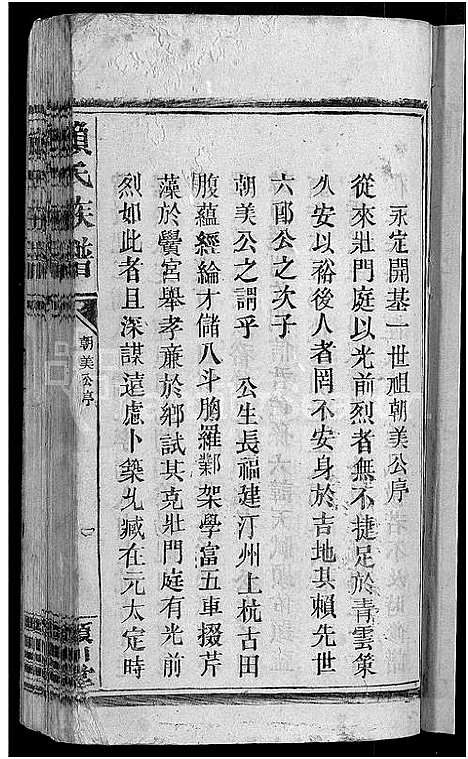 永定開基一世祖朝美公序
從來壯門庭以光前烈者無不捷足於青雲策
久安以裕後人者罔不安身於吉地其賴先世
六郎公之次子
朝美公之謂乎　公生長福建汀州上杭古田
腹蘊經綸才儲八斗胸羅鄴架學富五車掇芹
藻於黌宮舉孝廉於鄉試其克壯門庭有光前
烈如此者且深謀遠慮卜築允臧在元太定時
賴氏族譜
朝美公序
一